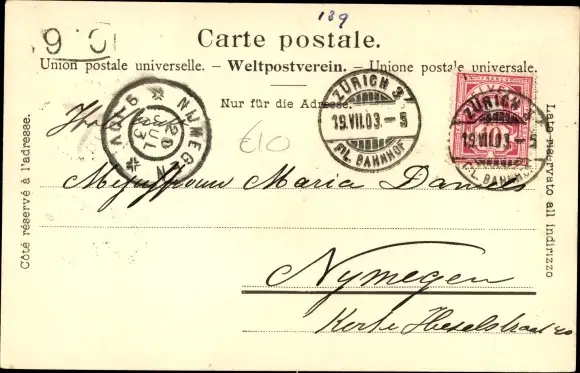 139
Carte postale.
Union postale universelle. – Weltpostverein. – Unione postale universale.
Nur für die Adresse.
ZÜRICH 3
19.VII.03.–5
FIL. BAHNHOF
ZÜRICH 3
19.VII.03.–5
FIL. BAHNHOF
10
NIJMEGEN
20 JUL 03
€10
Côté réservé à l'adresse.
Lato riservato all indirizzo
Mejuffrouw Maria Daniels
Nymegen
Korte Hezelstraat